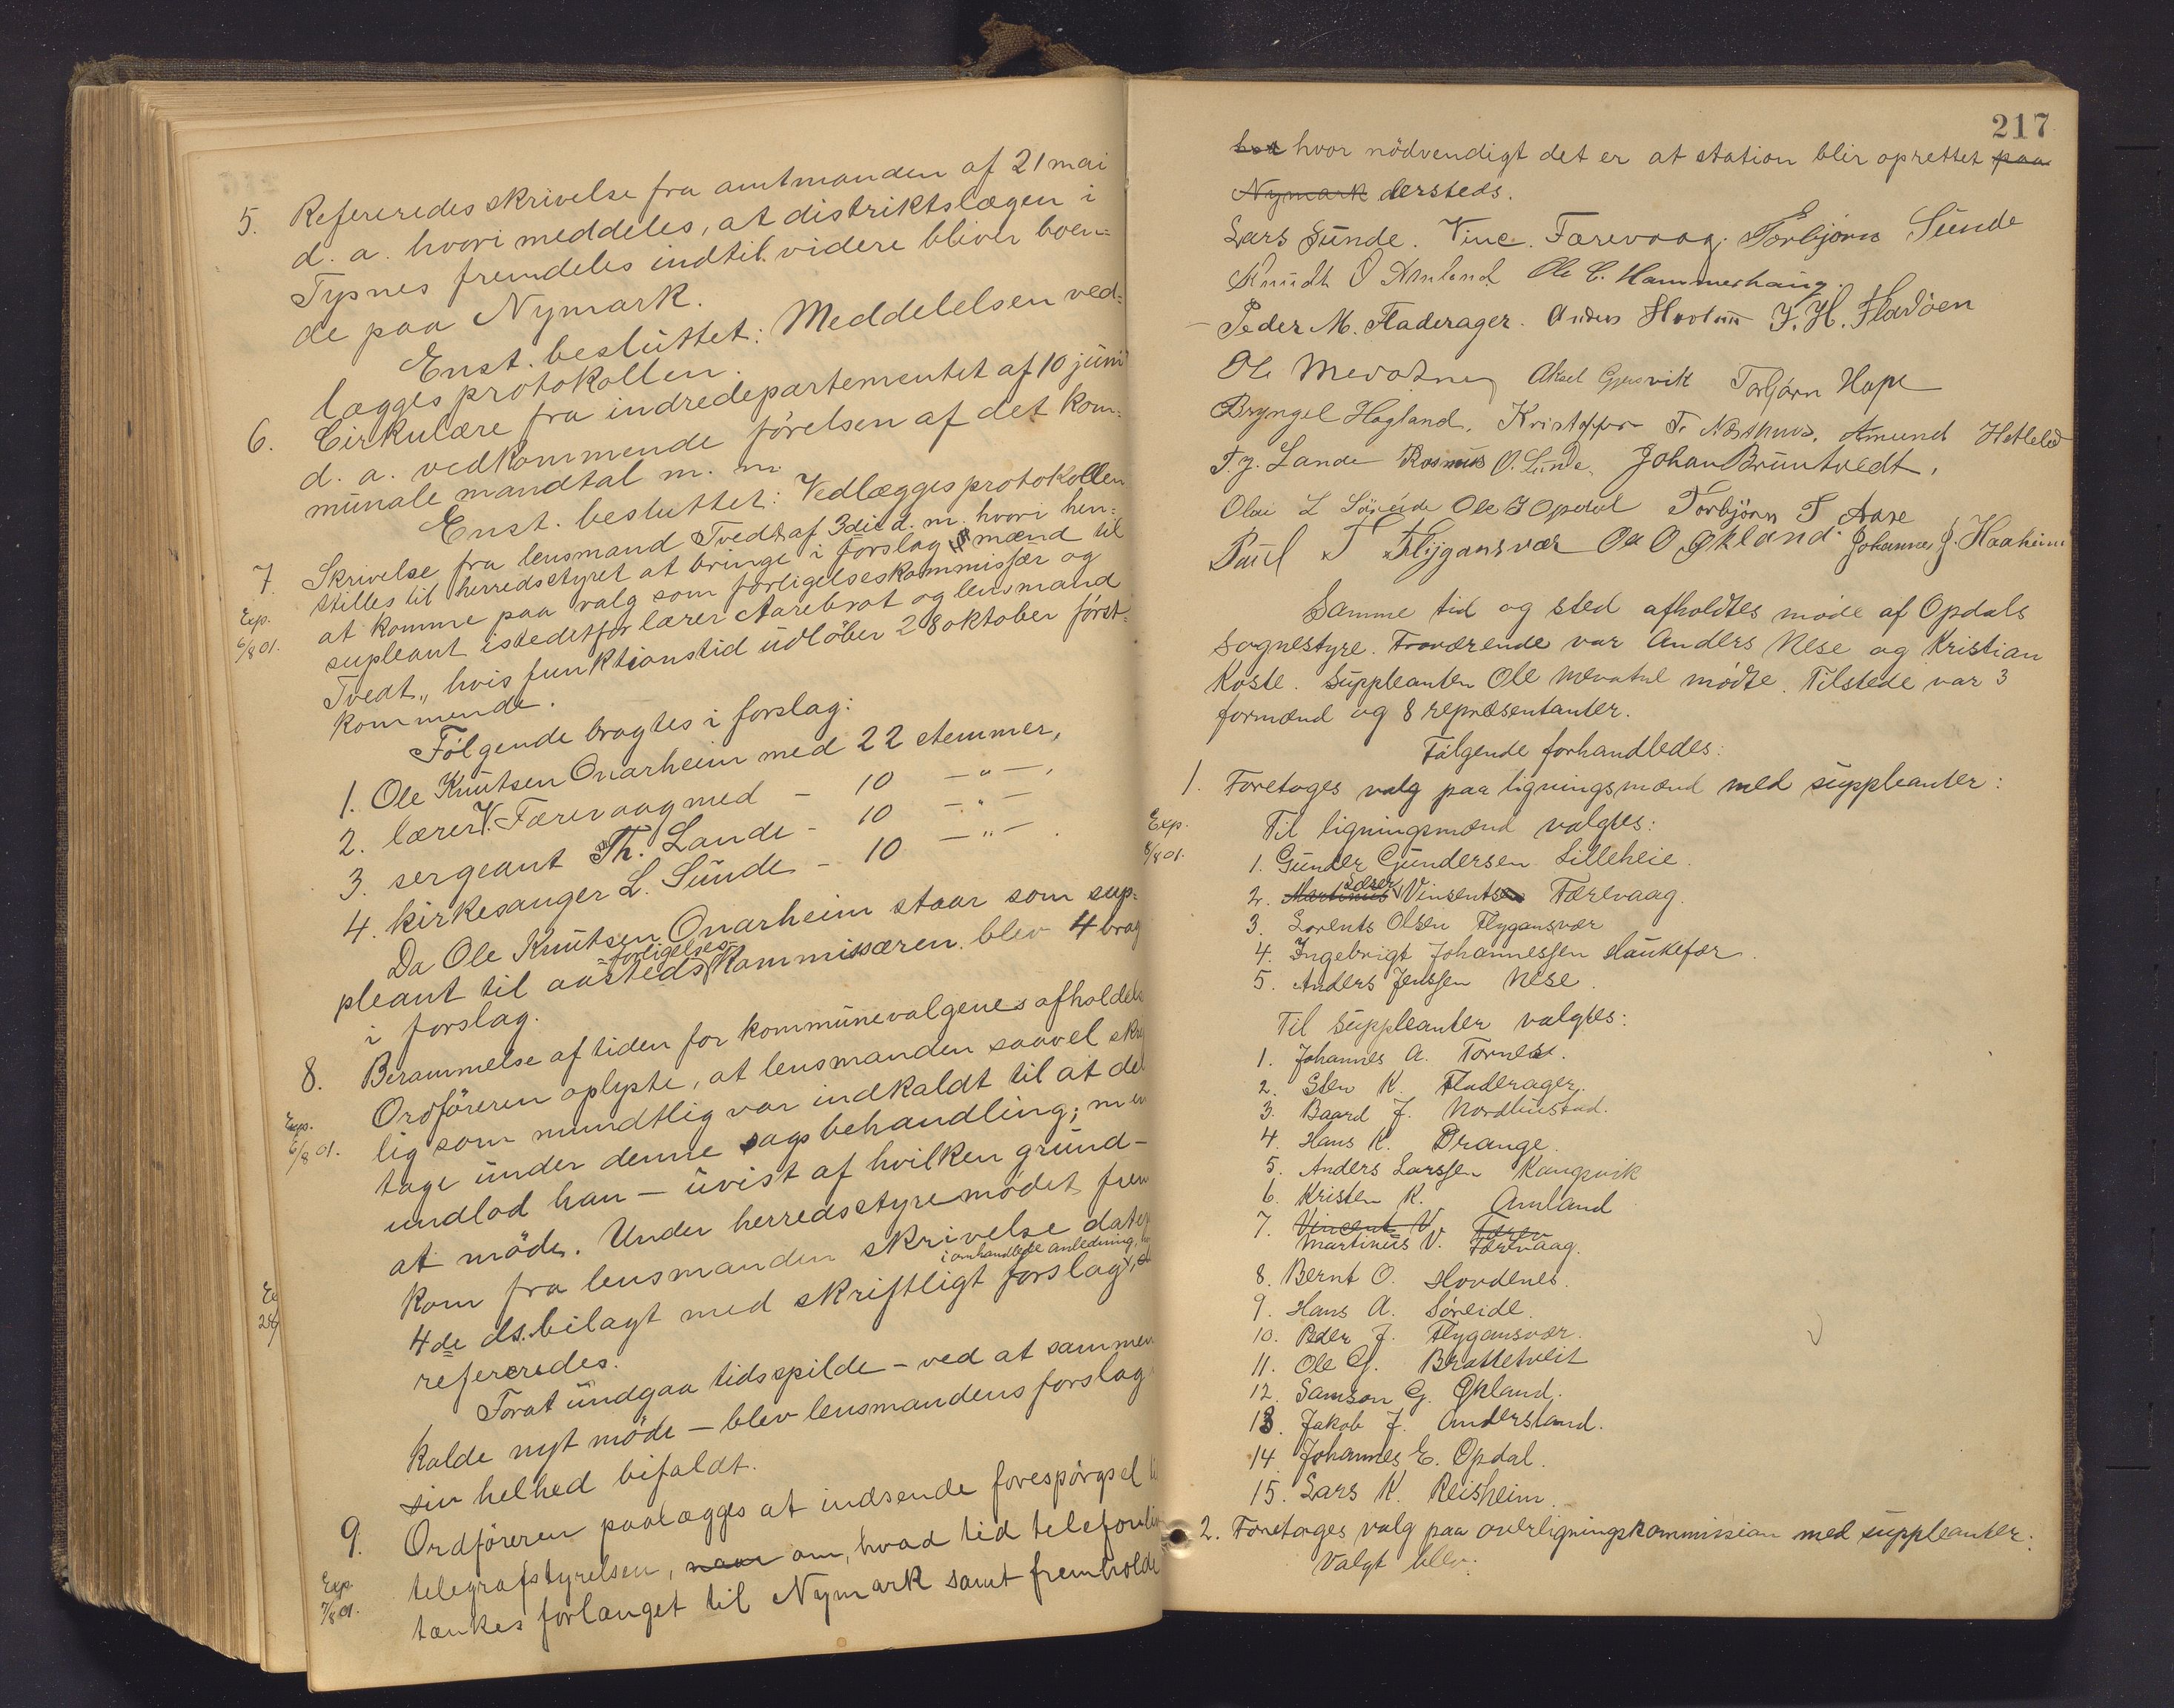 5. Refereredes skrivelse fra amtmanden af 21 mai
d. a. hvori meddeles, at distriktslægen i
Tysnes fremdeles indtil videre bliver boen-
de paa Nymark.
Enst. besluttet: Meddelelsen ved-
lægges protokollen.
6. Cirkulære fra indredepartementet af 10 juni
d. a. vedkommende førelsen af det kom-
munale mandtal m. m.
Enst. besluttet: Vedlægges protokollen
7. Skrivelse fra lensmand Tvedt af 3die d. m. hvori hen-
stilles til herredsstyret at bringe i forslag mænd til
Exp. 6/8 01. at komme paa valg som forligelseskommissær og
supleant istedetfor lærer Aarebrot og lensmand
Tvedt, hvis funktionstid udløber 28 oktober først-
kommende.
Følgende bragtes i forslag:
1. Ole Knutsen Onarheim med 22 stemmer,
2. lærer V. Færevaag med - 10 -"-,
3. sergeant Th. Lande - 10 -"-
4. kirkesanger L. Sunde - 10 -"-.
Da Ole Knutsen Onarheim staar som sup-
forligelses-
pleant til aasteds kommissæren blev 4 brag
i forslag.
8. Berammelse af tiden for kommunevalgenes afholdels
Ordføreren oplyste, at lensmanden saavel skr
Exp. 6/8 01. lig som mundtlig var indkaldt til at de
tage under denne sags behandling; men
undlod han - uvist af hvilken grund -
at møde. Under herredsstyremødet frem
kom fra lensmanden skrivelse dater
i omhandlede anledning,
4de ds. bilagt med skriftligt forslag,
refereredes.
Forat undgaa tidsspilde - ved at sammen
kalde nyt møde - blev lensmandens forslag
sin helhed bifaldt.
9. Ordføreren paalægges at indsende forespørgsel ti
Exp. 7/8 01. telegrafstyrelsen, naar om, hvad tid telefonlin
tænkes forlænget til Nymark samt fremholde
217
hvor nødvendigt det er at station blir oprettet paa
Nymark dersteds.
Lars Sunde. Vinc. Færevaag. Torbjørn Sunde
Knudt O Amland Ole C. Hammerhaug.
Peder M. Fladerager. Anders Hovland J. H. Fladøen
Ole Mevatne Aksel Gjersvik Torbjørn Hope
Bryngel Hagland. Kristoffer T. Næsthus. Amund Hetleld
T. J. Lande Rasmus O. Sunde. Johan Bruntvedt.
Olai L Søreide Ole J Opdal Torbjørn T Aase
Paul T Flygansvær Ola O Økland. Johannes J. Haaheim
Samme tid og sted afholdtes møde af Opdals
Sognestyre. Fraværende var Anders Nese og Kristian
Koste. Suppleanten Ole Mevatne mødte. Tilstede var 3
formænd og 8 repræsentanter.
Følgende forhandledes:
1. Foretoges valg paa ligningsmænd med suppleanter:
Exp. 8/8 01. Til ligningsmænd valgtes:
1. Gunder Gundersen Lilleheie.
2. Martinus Lærer Vinsentsen Færevaag.
3. Lorents Olsen Flygansvær
4. Ingebrigt Johannessen Haukefær.
5. Anders Jenssen Nese.
Til suppleanter valgtes:
1. Johannes A. Tornes.
2. Sten K. Fladerager.
3. Baard J. Nordhustad.
4. Hans K. Drange.
5. Anders Larssen Kangsvik
6. Kristen K. Amland
7. Vincent V. Færev
Martinus V. Færevaag.
8. Bernt O. Hovdenes.
9. Hans A. Søreide.
10. Peder J. Flygansvær.
11. Ole G. Brattetveit
12. Samson G. Økland.
13. Jakob J. Anderstand.
14. Johannes E. Opdal.
15. Lars K. Reisheim.
2. Foretoges valg paa overligningskommission med suppleanter:
Valgt blev: